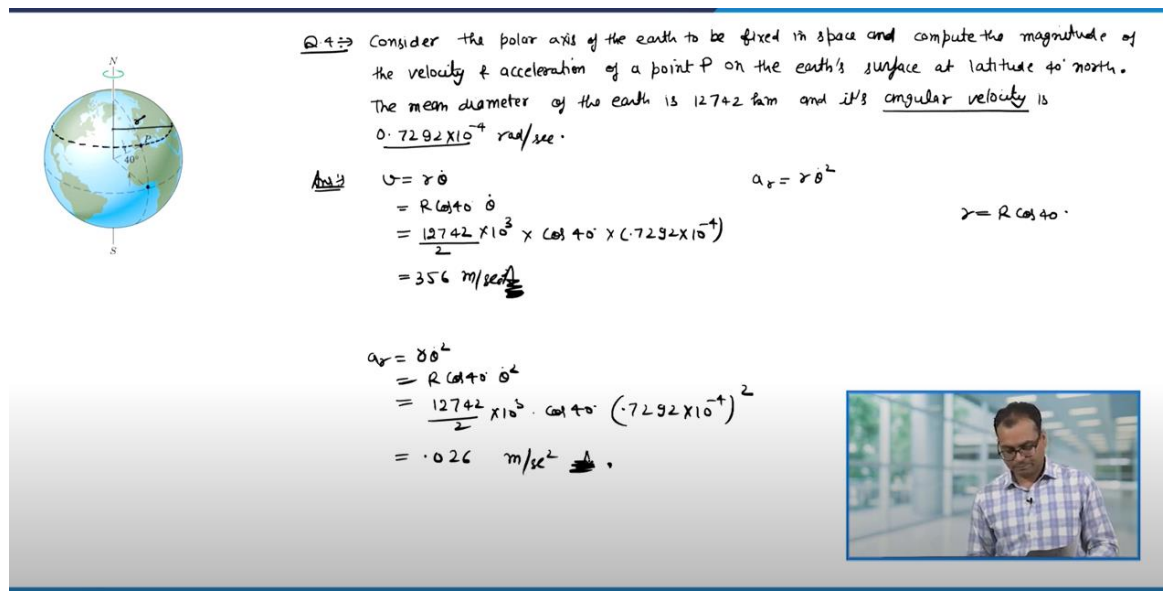 N
r
P
40°
S
Q.4:→ Consider the polar axis of the earth to be fixed in space and compute the magnitude of
the velocity & acceleration of a point P on the earth's surface at latitude 40° north.
The mean diameter of the earth is 12742 km and it's angular velocity is
0.7292×10⁻⁴ rad/sec.
Ans:
v = rθ̇
= R cos40 θ̇
= 12742/2 ×10³ × cos 40° × (.7292×10⁻⁴)
= 356 m/sec
aᵣ = rθ̇²
r = R cos 40°
aᵣ = rθ̇²
= R cos40° θ̇²
= 12742/2 ×10³ . cos 40° (.7292×10⁻⁴)²
= .026 m/se²